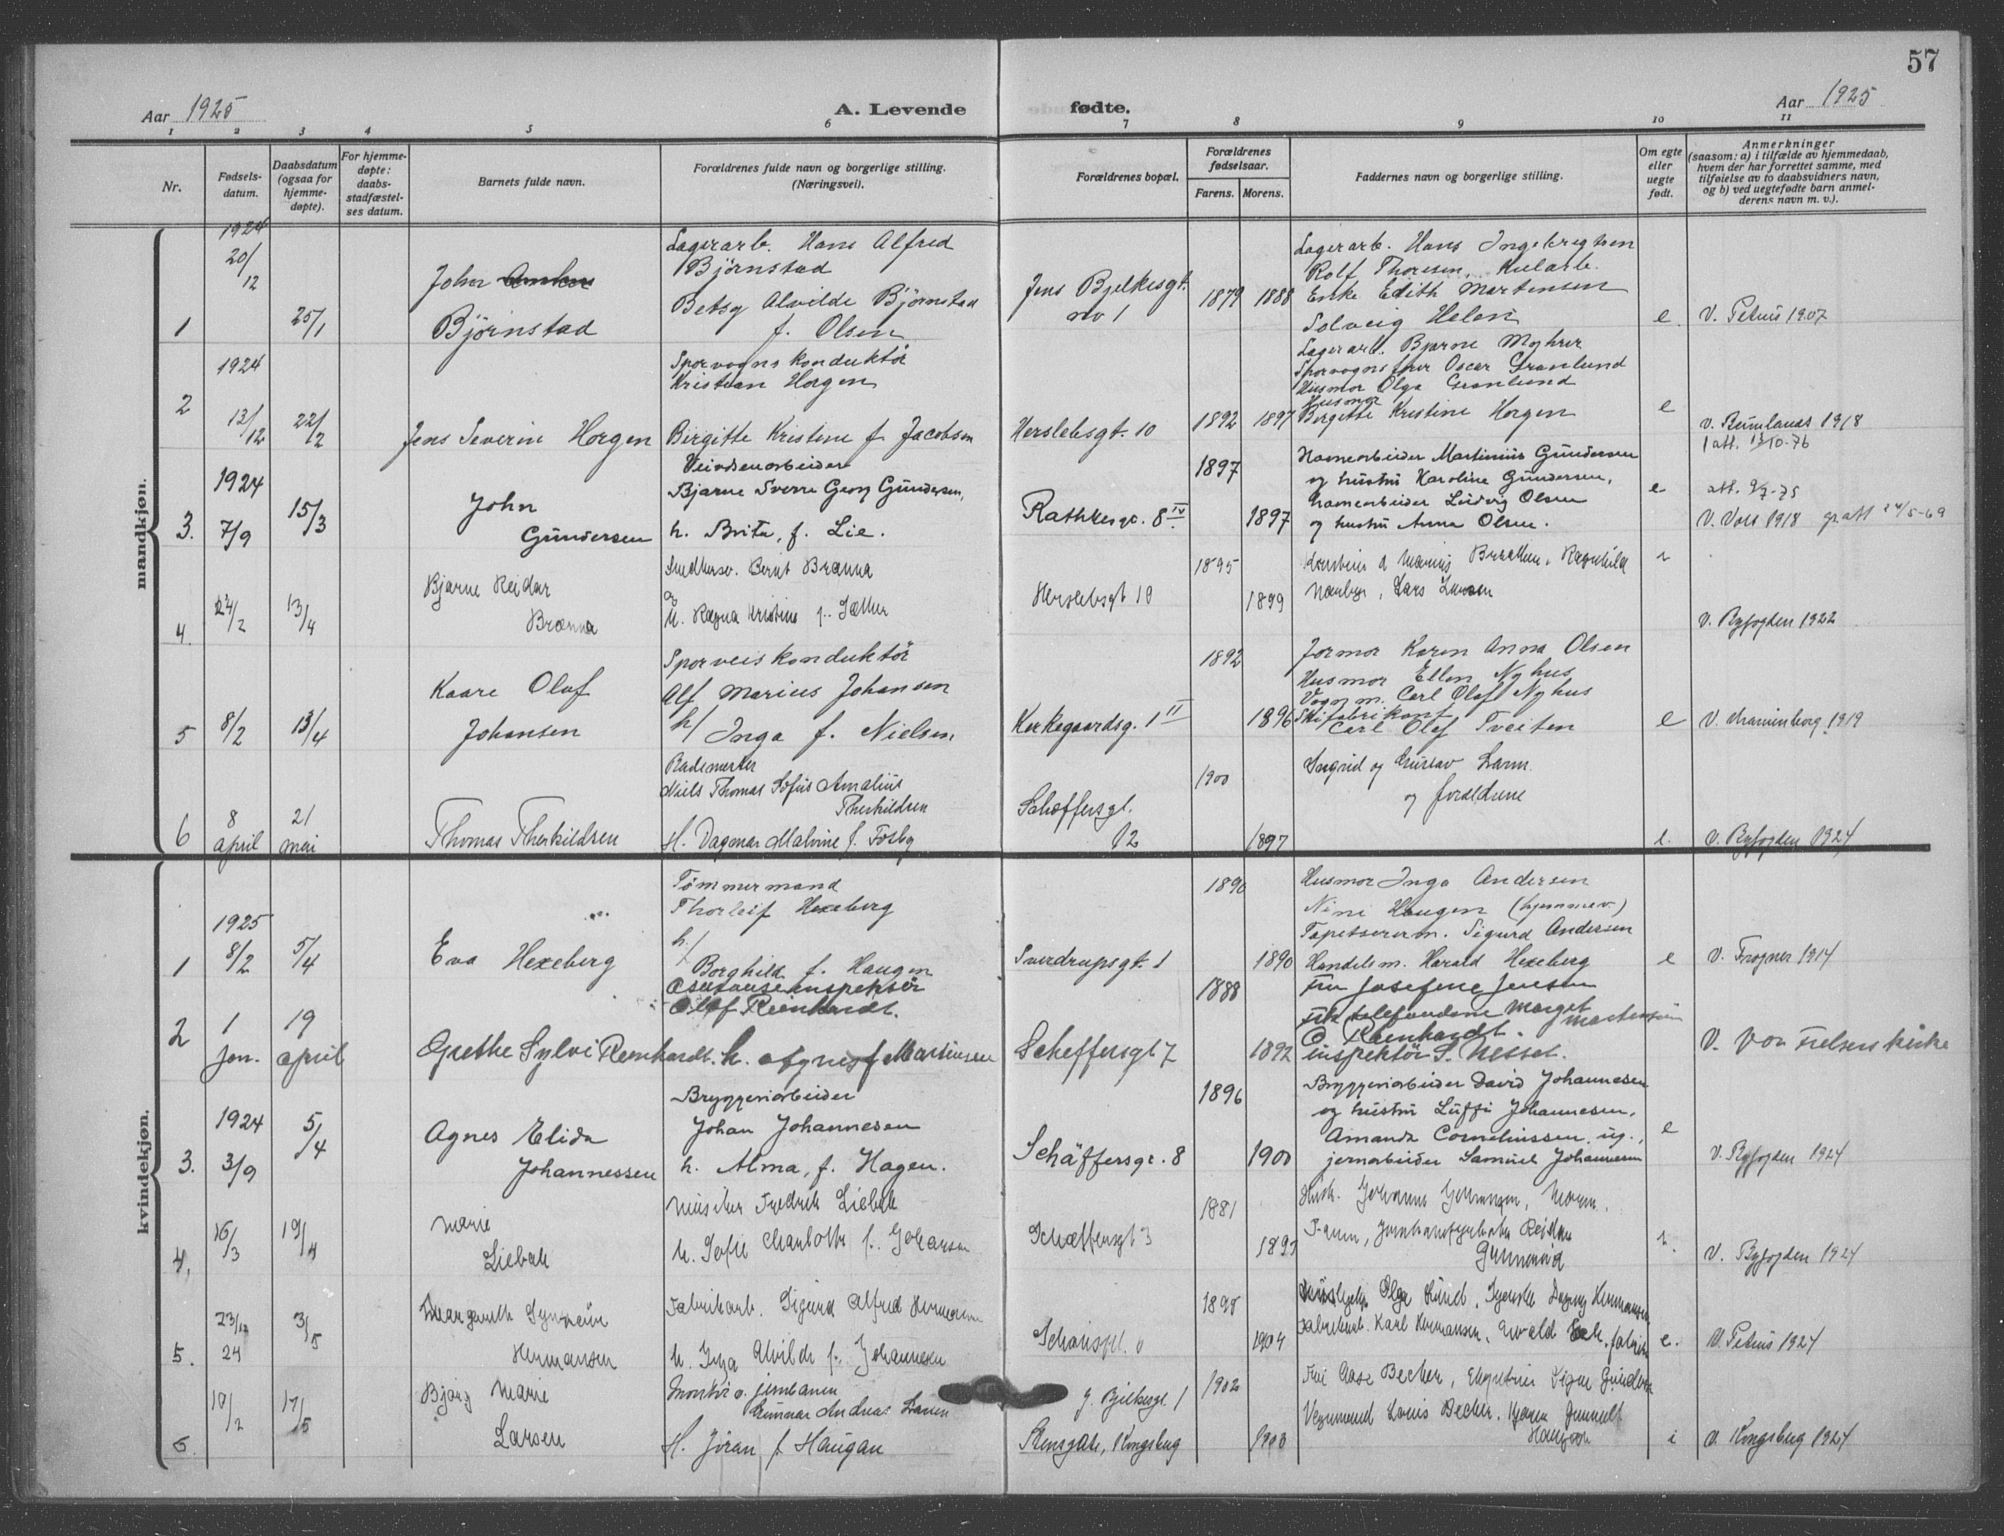 57
Aar 1925
A. Levende
fødte.
Aar 1925
1 2 3 4 5 6 7 8 9 10 11
Nr.
Fødsels-
datum.
Daabsdatum
(ogsaa for
hjemme-
døpte).
For hjemme-
døpte:
daabs-
stadfæstel-
ses datum.
Barnets fulde navn.
Forældrenes fulde navn og borgerlige stilling.
(Næringsvei).
Forældrenes bopæl.
Forældrenes
fødselsaar.
Farens. Morens.
Faddernes navn og borgerlige stilling.
Om egte
eller
uegte
født.
Anmerkninger
(saasom: a) i tilfælde av hjemmedaab,
hvem der har forrettet samme, med
tilføielse av to daabsvidners navn,
og b) ved uegtefødte barn anmel-
derens navn m. v.).
mandkjøn.
1
1924
20/12
25/1
John
Bjørnstad
Lagerarb. Hans Alfred
Bjørnstad
Betsy Alvilde Bjørnstad
f. Olsen
Jens Bjelkesgt.
no 1
1879 1888
Lagerarb. Hans Ingebrigtsen
Rolf Thoresen,
Enke Edith Martensen
Solveig Helen
Lagerarb. Bjarne
e.
V. Petrus 1907
2
1924
13/12
22/2
Jens Severin Horgen
Sporvognskonduktör
Kristian Horgen
Birgitte Kristine f Jacobsen
Herslebsgt. 10
1892 1897
Sporvognsfører Oscar Granlund
Husmor Olga Granlund
Husmor
Birgitte Kristine Horgen
e
1918
1 att. 13/10-76
3.
1924
7/9
15/3
John
Gundersen
Bjarne Sverre Georg Gundersen,
h. Brita, f. Lie.
Rathkesgt. 8 IV
1897
1897
Havnearbeider Martinius Gundersen
og hustru Karoline Gundersen,
havnearbeider Ludvig Olsen
og hustru Anna Olsen.
e
att. 9/7-75
V. Voss 1918 gr att 24/5-69
4.
24/2
13/4
Bjarne Reidar
Brænna
Smedhersv. Bernt Brænna
og
h. Ragna Kristine f. Sæther
Herslebsgt 10
1895
1899
Lars Larsen
V. Byfogden 1922
5
8/2
13/4
Kaare Olaf
Johansen
Sporveiskonduktör
Alf Marius Johansen
h/ Inga f. Nielsen
Kirkegaardsg. 1 II
1892
1896
Farmor Karen Anna Olsen
Husmor Ellen Nyhus
Vognm. Carl Olaf Nyhus
Skifabrikant
Carl Olaf Tveiten
e
1919
6
8
april
21
mai
Thomas Therkildsen
Bademester
Niels Thomas Sofus Amalius
Therkildsen
H. Dagmar Malvine f. Fosby
Schæffersgt.
12
1900
1897
Ingrid og Gustav
og forældrene
e.
V. Byfogden 1924
kvindekjøn.
1
1925
8/2
5/4
Eva Hexeberg
Tømmermand
Thorleif Hexeberg
h/
Borghild f. Haugen
Sverdrupsgt. 1
1890
1890
Husmor Inga Andersen
Nini Haugen (hjemmev.)
Tapetserem. Sigurd Andersen
Handelsm. Harald Hexeberg
e
V. Frogner 1914
2
1
jan.
19
april
Grethe Sylvi Reinhardt.
Assuranseinspektør
Olaf Reinhardt.
h. Agnes f Martinsen
Scheffersgt 7
1888
1892
Fru Josefine Jensen
Frk telefondame Margit Martensen
O Reinhardt.
inspektör S. Nesset.
V. Vor Frelsers kirke
3.
1924
3/9
5/4
Agnes Elida
Johannessen
Bryggeriarbeider
Johan Johannesen
h. Alma, f. Hagen.
Schäffersgt. 8
1896
1900
Bryggeriarbeider David Johannesen
og hustru Luffi Johannesen,
Amanda Corneliussen, ug.,
jernarbeider Samuel Johannesen
e
V. Byfogden 1924
4.
16/3
19/4
Marie
Liebak
Musiker Fredrik Liebak
h. Sofie Charlotte f. Johansen
Schæffersgt 3
1881
Gunnerød
V. Byfogden 1924
5.
23/12
24
3/5
Margareth Synnøve
Hermansen
Fabrikarb. Sigurd Alfred Hermansen
h. Inga Alvilde f. Johannesen
1895
1904
Karl Hermansen,
e.
V. Petrus 1924
6.
10/2
17/5
Bjørg Marie
Larsen
Montør v. jernbanen
Gunnar Andreas Larsen
H. Jöran f Haugan
J. Bjelkesgt. 1
Kongsberg
1902
1900
Fru Aase Becker,
Louis Becker,
V. Kongsberg 1924